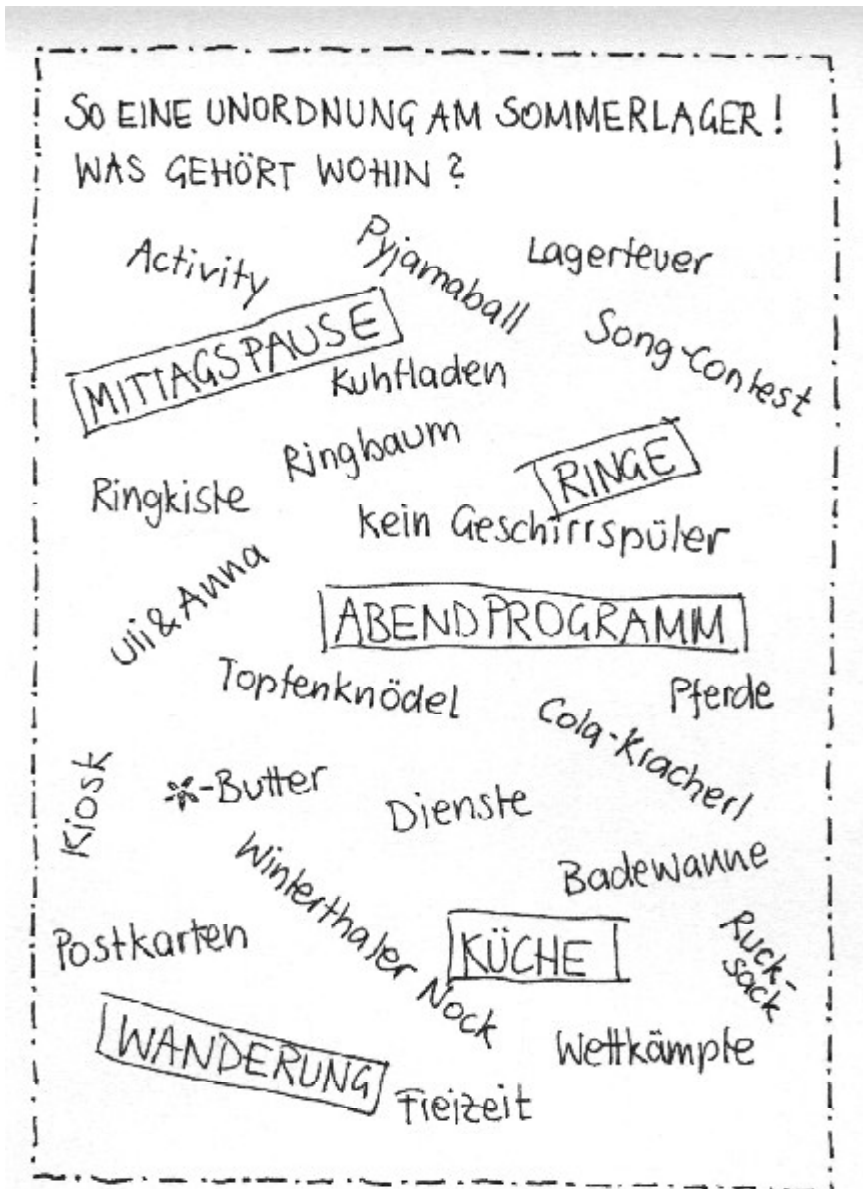 SO EINE UNORDNUNG AM SOMMERLAGER!
WAS GEHÖRT WOHIN?
Activity
Pyjamaball
Lagerfeuer
MITTAGSPAUSE
Song-Contest
Kuhfladen
Ringbaum
RINGE
Ringkiste
Kein Geschirrspüler
Uli & Anna
ABENDPROGRAMM
Topfenknödel
Pferde
Cola-Kracherl
Kiosk
*-Butter
Dienste
Winterthaler Nock
Badewanne
Postkarten
KÜCHE
Ruck-
sack
WANDERUNG
Wettkämpfe
Freizeit